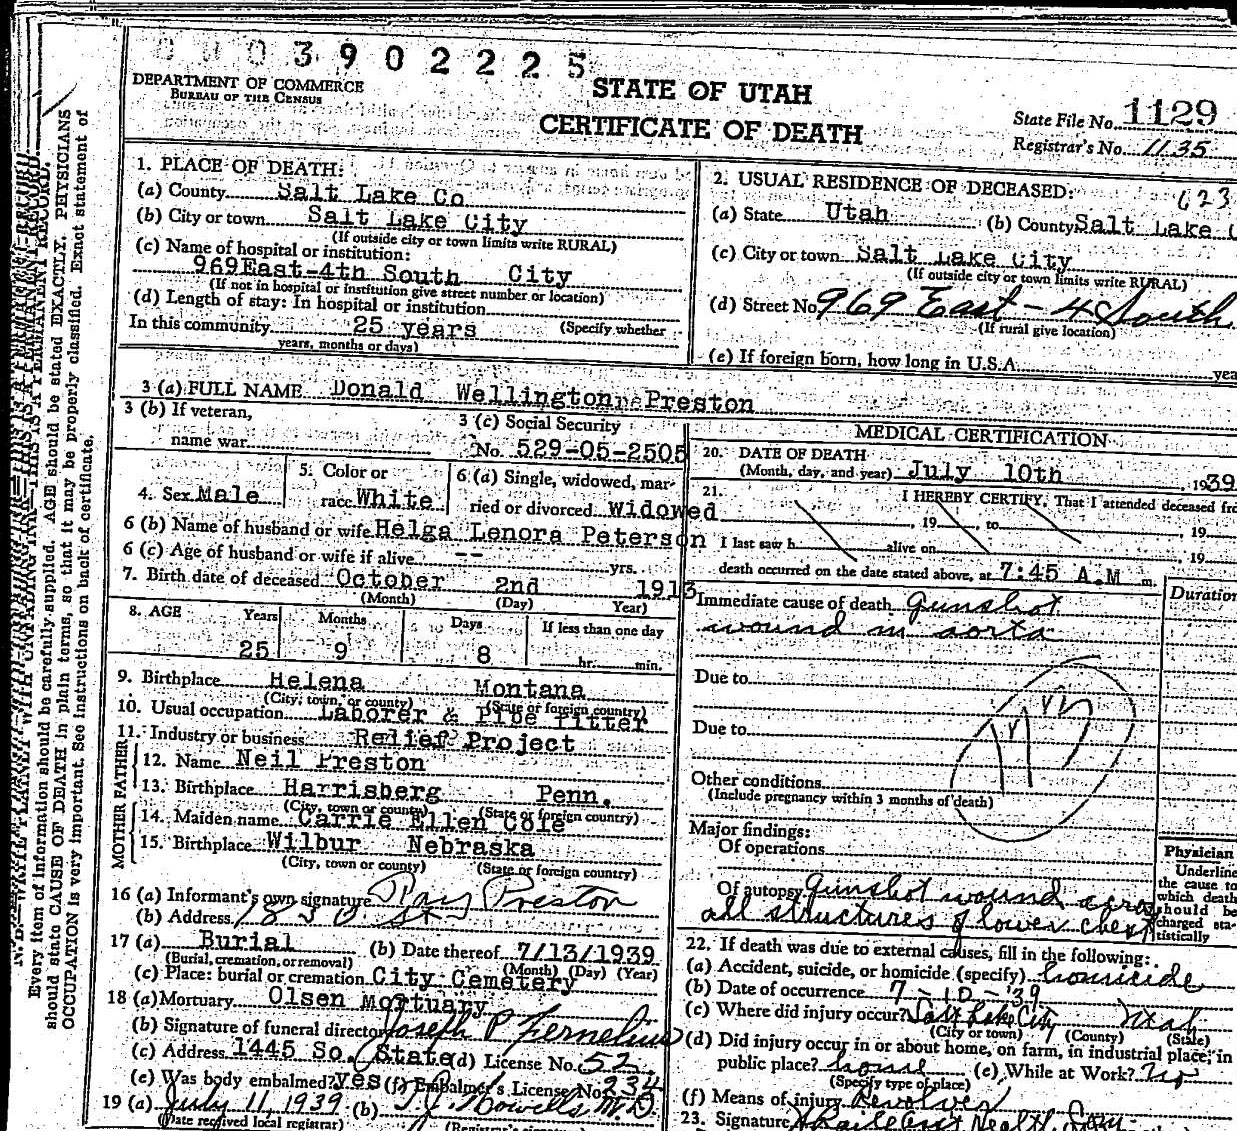 0 0 0 3 9 0 2 2 2 5
DEPARTMENT OF COMMERCE
BUREAU OF THE CENSUS
STATE OF UTAH
CERTIFICATE OF DEATH
State File No. 1129
Registrar's No. 1135
1. PLACE OF DEATH:
(a) County Salt Lake Co
(b) City or town Salt Lake City
(If outside city or town limits write RURAL)
(c) Name of hospital or institution:
969 East-4th South City
(If not in hospital or institution give street number or location)
(d) Length of stay: In hospital or institution
In this community 25 years (Specify whether
years, months or days)
2. USUAL RESIDENCE OF DECEASED:
623
(a) State Utah (b) County Salt Lake C
(c) City or town Salt Lake City
(If outside city or town limits write RURAL)
(d) Street No. 969 East - 4 South
(If rural give location)
(e) If foreign born, how long in U.S.A. yea
3 (a) FULL NAME Donald Wellington Preston
3 (b) If veteran,
name war
3 (c) Social Security
No. 529-05-2505
4. Sex Male
5. Color or
race White
6 (a) Single, widowed, mar-
ried or divorced Widowed
6 (b) Name of husband or wife Helga Lenora Peterson
6 (c) Age of husband or wife if alive -- yrs.
7. Birth date of deceased October 2nd 1913
(Month) (Day) Year)
8. AGE Years Months Days If less than one day
25 9 8 hr. min.
9. Birthplace Helena Montana
(City, town, or county) (State or foreign country)
10. Usual occupation Laborer & Pipe fitter
11. Industry or business Relief Project
FATHER
12. Name Neil Preston
13. Birthplace Harrisberg Penn.
(City, town or county) (State or foreign country)
MOTHER
14. Maiden name Carrie Ellen Cole
15. Birthplace Wilbur Nebraska
(City, town or county) (State or foreign country)
16 (a) Informant's own signature Ray Preston
(b) Address
17 (a) Burial (b) Date thereof 7/13/1939
(Burial, cremation, or removal) (Month) (Day) (Year)
(c) Place: burial or cremation City Cemetery
18 (a) Mortuary Olsen Mortuary
(b) Signature of funeral director Joseph P Fernelius
(c) Address 1445 So. State (d) License No. 52
(e) Was body embalmed? yes (f) Embalmer's License No. 234
19 (a) July 11, 1939 (b)
(Date received local registrar)
MEDICAL CERTIFICATION
20. DATE OF DEATH
(Month, day, and year) July 10th , 1939
21. I HEREBY CERTIFY, That I attended deceased fro
, 19 , to , 19
I last saw h alive on , 19
death occurred on the date stated above, at 7:45 A.M m.
Duration
Immediate cause of death Gunshot
wound in aorta
Due to
Due to
Other conditions
(Include pregnancy within 3 months of death)
Major findings:
Of operations
Of autopsy Gunshot wound across
all structures of lower chest
Physician
Underline
the cause to
which death
should be
charged sta-
tistically
22. If death was due to external causes, fill in the following:
(a) Accident, suicide, or homicide (specify) homicide
(b) Date of occurrence 7-10-'39
(c) Where did injury occur? Salt Lake City Utah
(City or town) (County) (State)
(d) Did injury occur in or about home, on farm, in industrial place, in
public place? house (e) While at Work? No
(Specify type of place)
(f) Means of injury Revolver
23. Signature
Every item of information should be carefully supplied. AGE should be stated EXACTLY. PHYSICIANS
should state CAUSE OF DEATH in plain terms, so that it may be properly classified. Exact statement of
OCCUPATION is very important. See instructions on back of certificate.